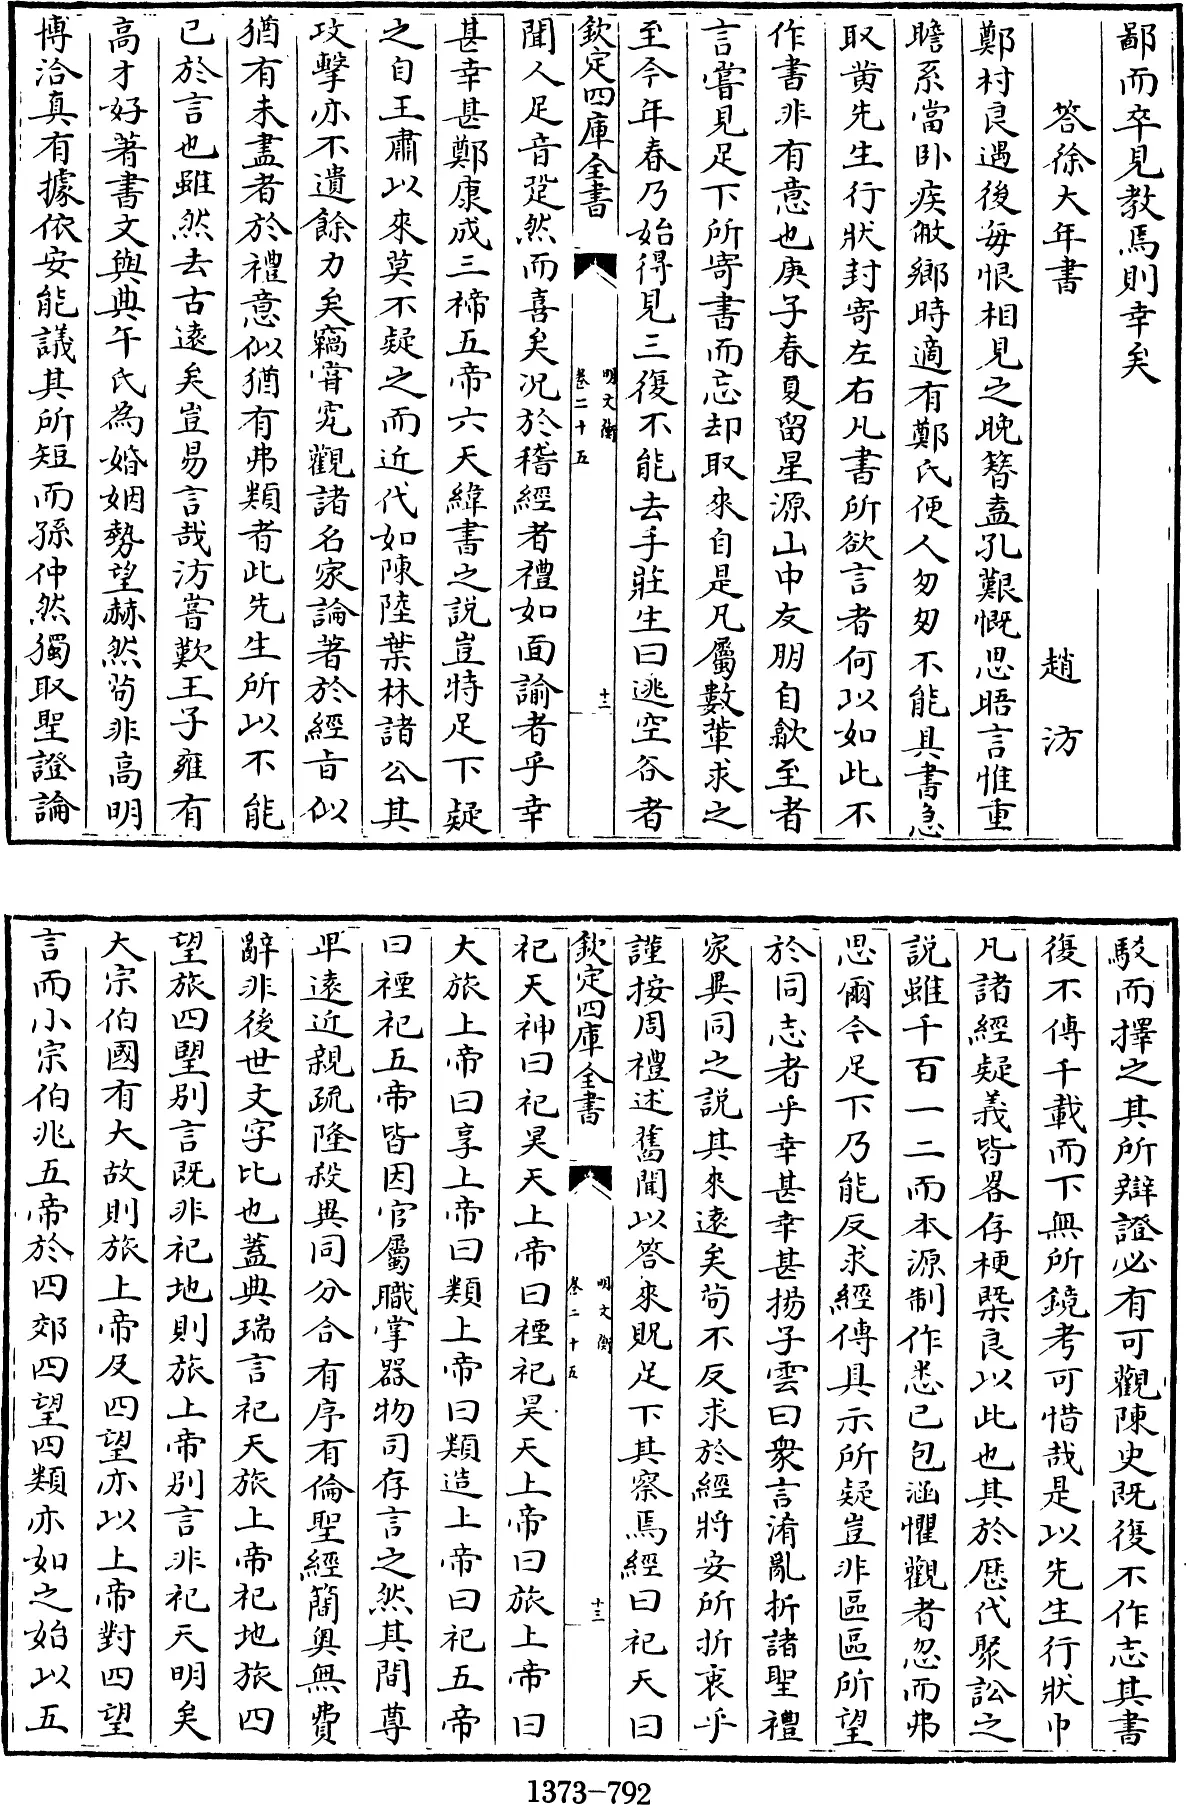 鄙而卒見教焉則幸矣
答徐大年書　趙汸
鄭村良遇後每恨相見之晚簪盍孔艱慨思晤言惟重
瞻系當卧疾敝鄉時適有鄭氏便人匆匆不能具書急
取黄先生行狀封寄左右凡書所欲言者何以如此不
作書非有意也庚子春夏留星源山中友朋自歙至者
言嘗見足下所寄書而忘却取來自是凡屬數輩求之
至今年春乃始得見三復不能去手莊生曰逃空谷者
欽定四庫全書
明文衡
卷二十五
十二
聞人足音跫然而喜矣况於稽經者禮如面諭者乎幸
甚幸甚鄭康成三禘五帝六天緯書之説豈特足下疑
之自王肅以來莫不疑之而近代如陳陸葉林諸公其
攻擊亦不遺餘力矣竊甞究觀諸名家論著於經旨似
猶有未盡者於禮意似猶有弗類者此先生所以不能
已於言也雖然去古遠矣豈易言哉汸嘗歎王子雍有
高才好著書文與典午氏為婚姻勢望赫然茍非高明
博洽真有據依安能議其所短而孫仲然獨取聖證論
駁而擇之其所辯證必有可觀陳史既復不作志其書
復不傳千載而下無所鏡考可惜哉是以先生行狀中
凡諸經疑義皆畧存梗槩良以此也其於歴代聚訟之
説雖千百一二而本源制作悉已包涵懼觀者忽而弗
思爾今足下乃能反求經傳具示所疑豈非區區所望
於同志者乎幸甚幸甚揚子雲曰衆言淆亂折諸聖禮
家異同之説其來遠矣茍不反求於經將安所折衷乎
謹按周禮述舊聞以答來貺足下其察焉經曰祀天曰
欽定四庫全書
明文衡
卷二十五
十三
祀天神曰祀昊天上帝曰禋祀昊天上帝曰旅上帝曰
大旅上帝曰享上帝曰類上帝曰類造上帝曰祀五帝
曰禋祀五帝皆因官屬職掌器物司存言之然其間尊
卑遠近親疏隆殺異同分合有序有倫聖經簡奥無費
辭非後世文字比也蓋典瑞言祀天旅上帝祀地旅四
望旅四望别言既非祀地則旅上帝别言非祀天明矣
大宗伯國有大故則旅上帝及四望亦以上帝對四望
言而小宗伯兆五帝於四郊四望四類亦如之始以五
1373-792